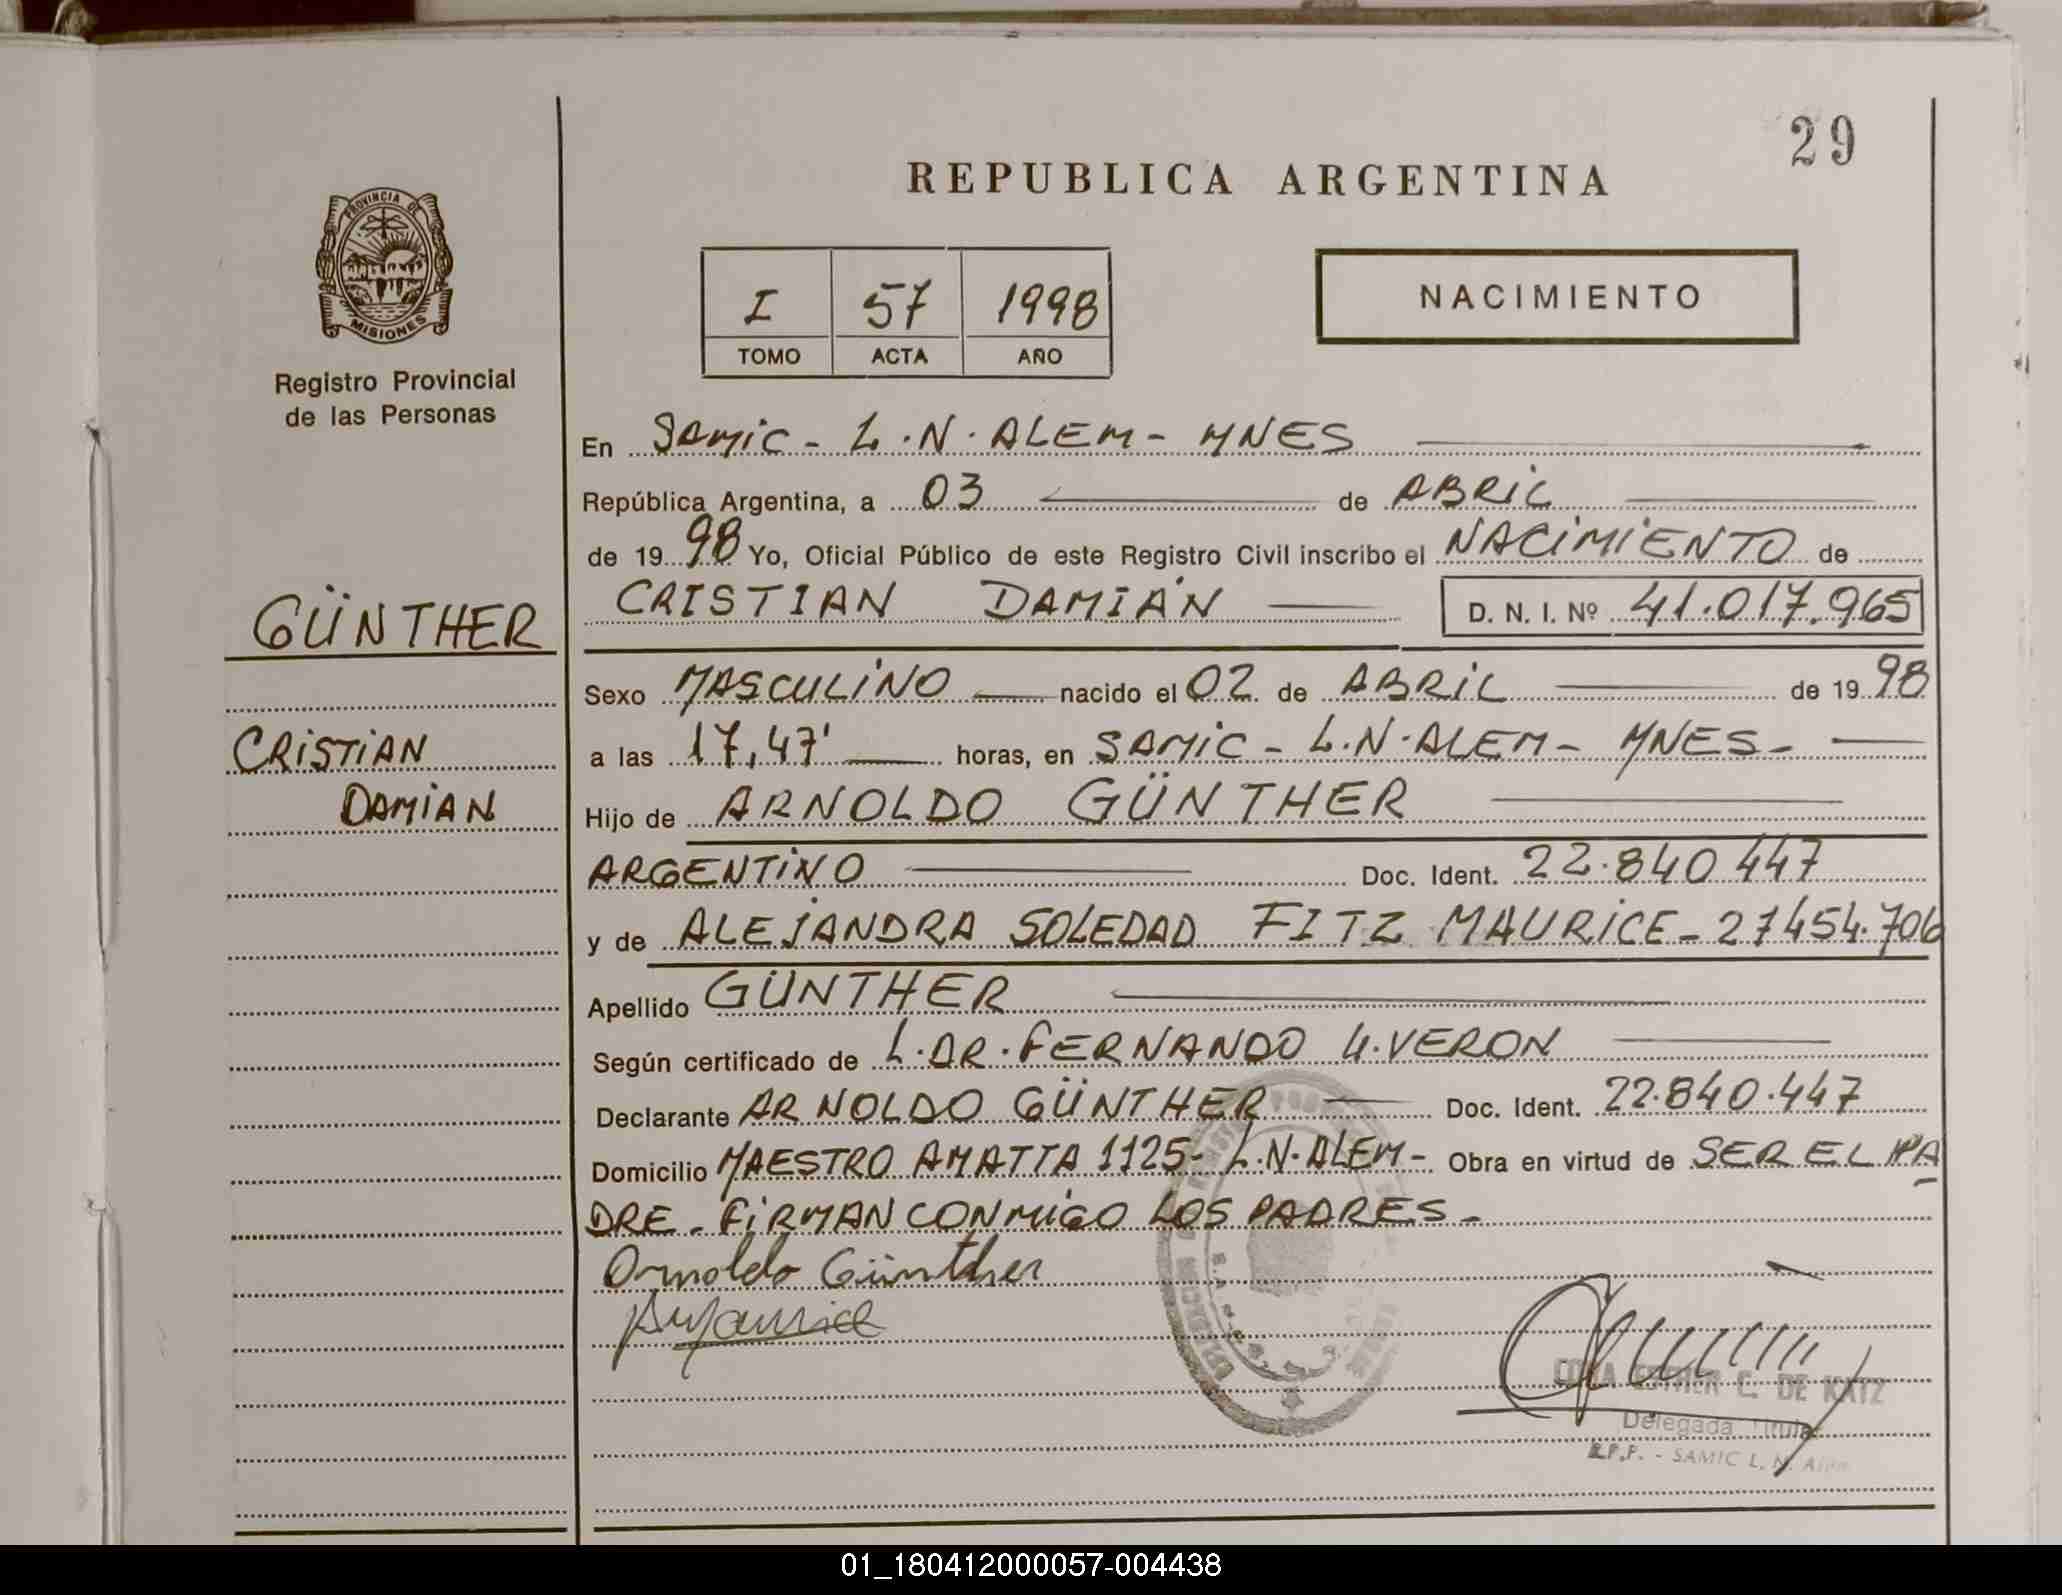 29
REPUBLICA ARGENTINA
PROVINCIA DE
MISIONES
Registro Provincial
de las Personas
I 57 1998
TOMO ACTA AÑO
NACIMIENTO
En SAMIC - L.N. ALEM - MNES
República Argentina, a 03 de ABRIL
de 1998 Yo, Oficial Público de este Registro Civil inscribo el NACIMIENTO de
CRISTIAN DAMIÁN D. N. I. Nº 41.017.965
GÜNTHER
CRISTIAN
DAMIAN
Sexo MASCULINO nacido el 02 de ABRIL de 1998
a las 17,47' horas, en SAMIC - L.N. ALEM - MNES -
Hijo de ARNOLDO GÜNTHER
ARGENTINO Doc. Ident. 22.840.447
y de ALEJANDRA SOLEDAD FITZ MAURICE - 27454.706
Apellido GÜNTHER
Según certificado de L. DR. FERNANDO VERON
Declarante ARNOLDO GÜNTHER Doc. Ident. 22.840.447
Domicilio MAESTRO AMATTA 1125 - L.N. ALEM - Obra en virtud de SER EL PA
DRE. FIRMAN CONMIGO LOS PADRES -
Arnoldo Günther
ESTHER C. DE KATZ
Delegada Titular
R.P.P. - SAMIC L. N. Alem
01_180412000057-004438